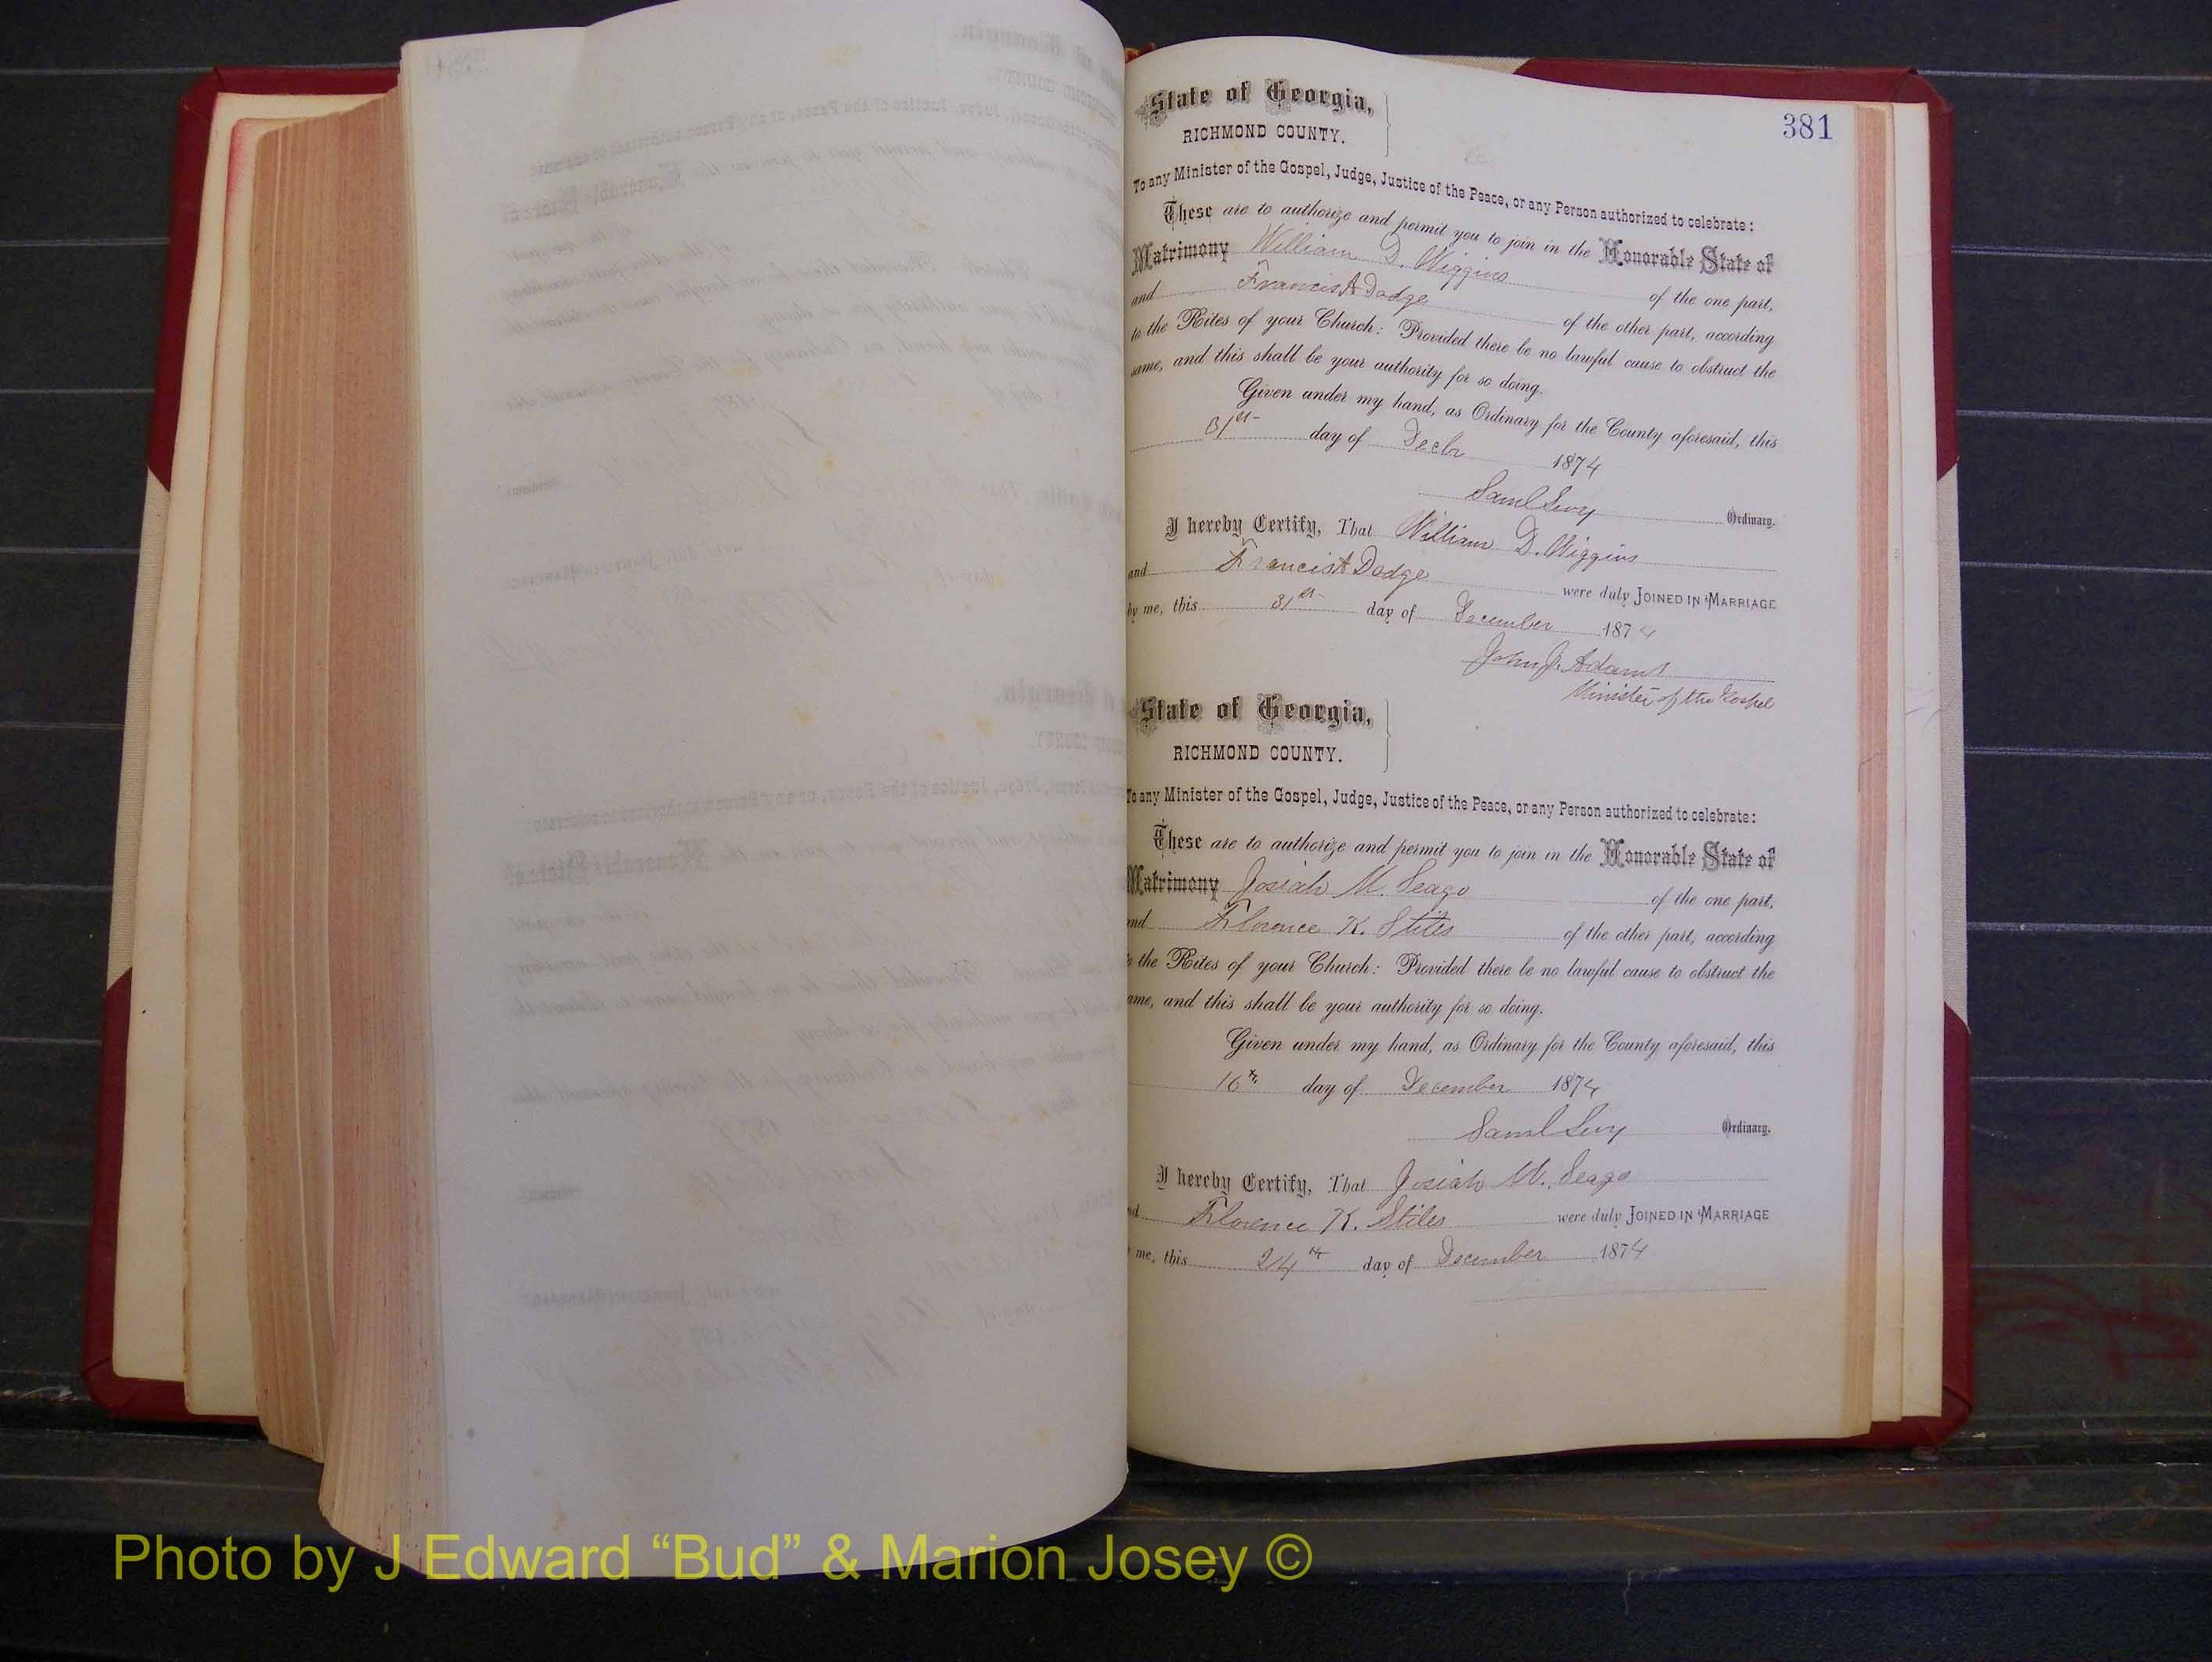 381
State of Georgia,
RICHMOND COUNTY.
To any Minister of the Gospel, Judge, Justice of the Peace, or any Person authorized to celebrate:
These are to authorize and permit you to join in the Honorable State of
Matrimony William D. Wiggins of the one part,
and Francis A Dodge of the other part, according
to the Rites of your Church: Provided there be no lawful cause to obstruct the
same, and this shall be your authority for so doing.
Given under my hand, as Ordinary for the County aforesaid, this
31st day of Decbr 1874
Saml Levy Ordinary.
I hereby Certify, That William D. Wiggins
and Francis A Dodge were duly JOINED IN MARRIAGE
by me, this 31st day of December 1874
John J. Adams
Minister of the Gospel
State of Georgia,
RICHMOND COUNTY.
To any Minister of the Gospel, Judge, Justice of the Peace, or any Person authorized to celebrate:
These are to authorize and permit you to join in the Honorable State of
Matrimony Josiah M. Seago of the one part,
and Florence K. Stiles of the other part, according
to the Rites of your Church: Provided there be no lawful cause to obstruct the
ame, and this shall be your authority for so doing.
Given under my hand, as Ordinary for the County aforesaid, this
16th day of December 1874
Saml Levy Ordinary.
I hereby Certify, That Josiah M. Seago
nd Florence K. Stiles were duly JOINED IN MARRIAGE
me, this 24th day of December 1874
Photo by J Edward “Bud” & Marion Josey ©